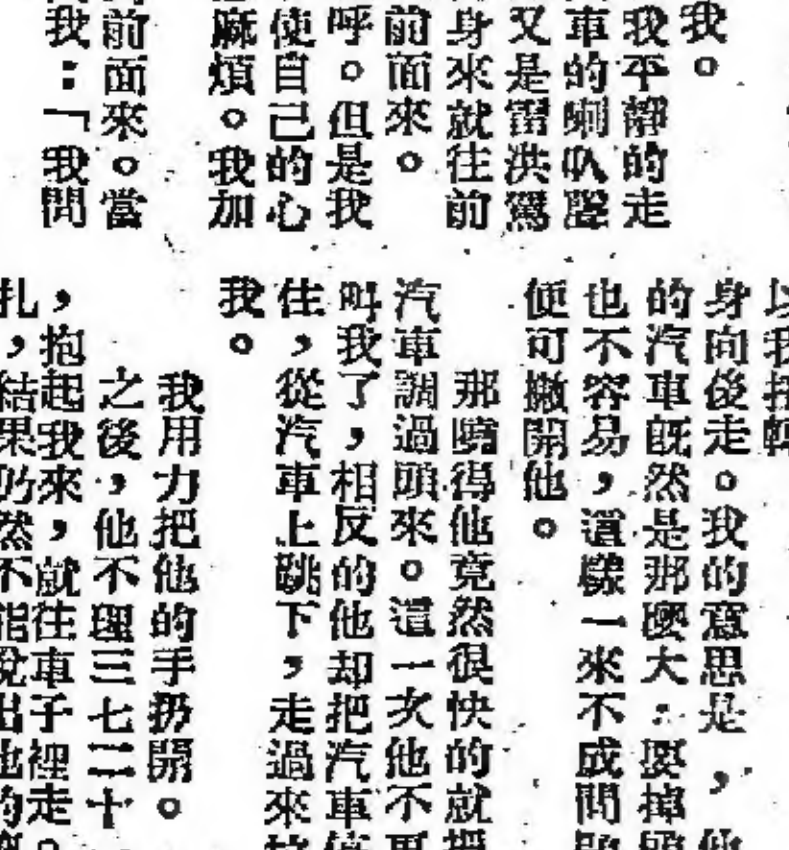 我。
我平靜的走
車的喇叭聲
又是雷洪駕
身來就往前
前面來。
呼。但是我
使自己的心
麻煩。我加
前面來。當
我：「我問
以我扭轉
身向後走。我的意思是，他
的汽車既然是那麼大，要掉頭
也不容易，這樣一來不成問題
便可撇開他。
那曉得他竟然很快的就把
汽車調過頭來。這一次他不再
叫我了，相反的他却把汽車停
住，從汽車上跳下，走過來拉
我。
我用力把他的手扔開。
之後，他不理三七二十
，抱起我來，就往車子裡走。
扎，結果仍然不能脫出他的